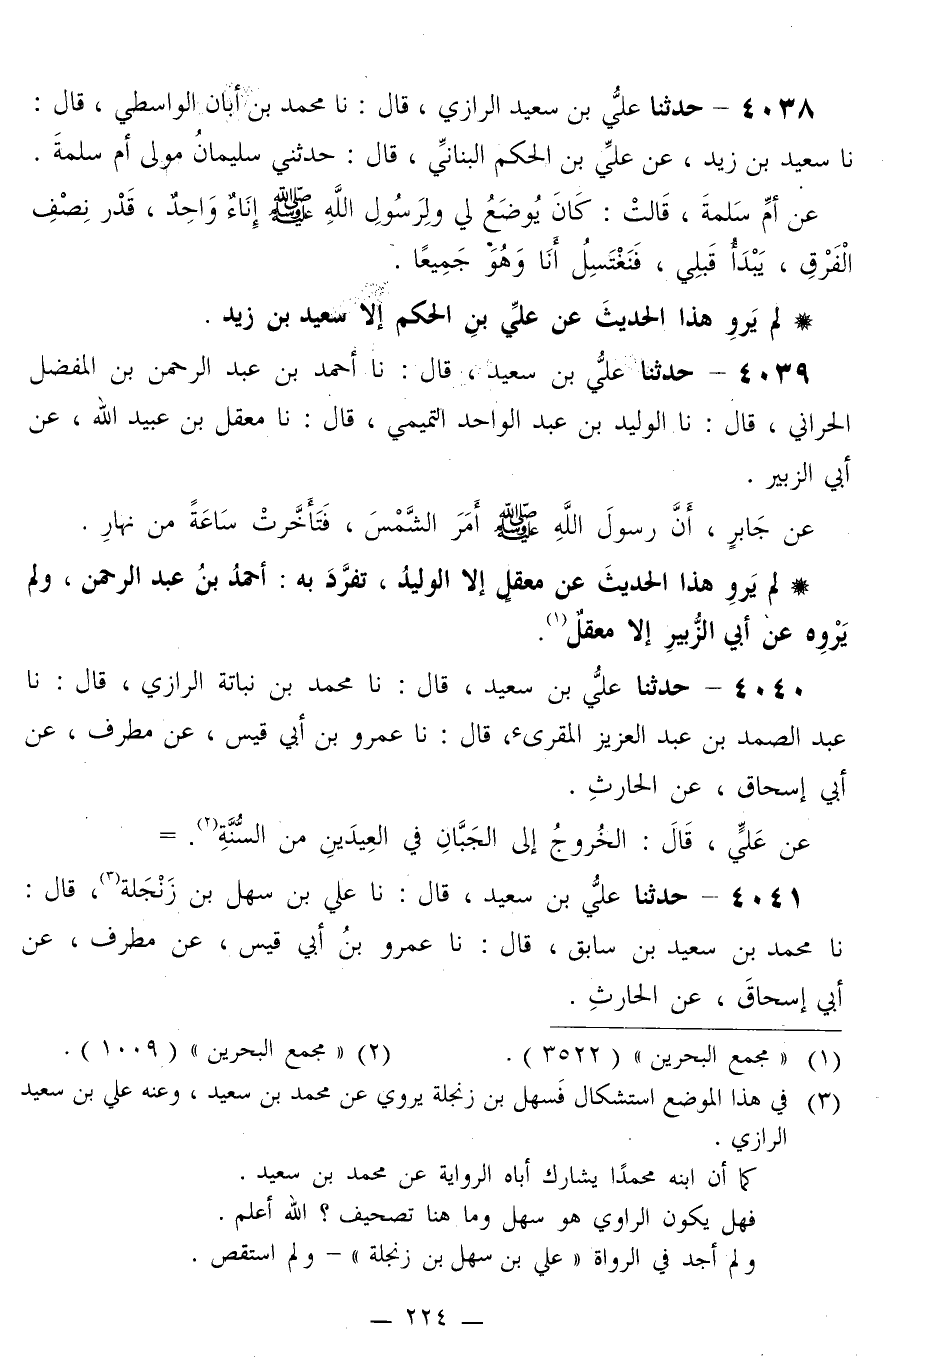 ٤٠٣٨ – حدثنا عليُّ بن سعيد الرازي ، قال : نا محمد بن أبان الواسطي ، قال :
نا سعيد بن زيد ، عن عليِّ بن الحكم البنانيِّ ، قال : حدثني سليمانُ مولى أم سلمةَ .
عن أمِّ سَلمةَ ، قَالتْ : كَانَ يُوضَعُ لي ولِرَسُولِ اللَّهِ ﷺ إِنَاءٌ وَاحِدٌ ، قَدْر نِصْفِ
الْفَرْقِ ، يَبْدَأُ قَبلِي ، فَنَغْتَسِلُ أَنَا وَهُوَ جَمِيعًا .
* لم يَروِ هذا الحديثَ عن عليِّ بنِ الحكم إلا سعيد بن زيد .
٤٠٣٩ – حدثنا عليُّ بن سعيد ، قال : نا أحمد بن عبد الرحمن بن المفضل
الحراني ، قال : نا الوليد بن عبد الواحد التميمي ، قال : نا معقل بن عبيد الله ، عن
أبي الزبير .
عن جَابرٍ ، أَنَّ رسولَ اللَّهِ ﷺ أَمَرَ الشَّمْسَ ، فَتَأَخَّرتْ سَاعَةً من نهارِ .
* لم يَروِ هذا الحديثَ عن معقلٍ إلا الوليدُ ، تفرَّدَ به : أحمدُ بنُ عبد الرحمن ، ولم
يَرْوِه عن أبي الزُّبيرِ إلا معقلٌ(١).
٤٠٤٠ – حدثنا عليُّ بن سعيد ، قال : نا محمد بن نباتة الرازي ، قال : نا
عبد الصمد بن عبد العزيز المقرىء، قال : نا عمرو بن أبي قيس ، عن مطرف ، عن
أبي إسحاق ، عن الحارثِ .
عن عَليٍّ ، قَالَ : الخُروجُ إلى الجَبَّانِ في العِيدَينِ من السُّنَّةِ(٢). =
٤٠٤١ – حدثنا عليُّ بن سعيد ، قال : نا علي بن سهل بن زَنْجَلة(٣)، قال :
نا محمد بن سعيد بن سابق ، قال : نا عمرو بنُ أبي قيس ، عن مطرف ، عن
أبي إسحاقَ ، عن الحارثِ .
(١) « مجمع البحرين » ( ٣٥٢٢ ) . (٢) « مجمع البحرين » ( ١٠٠٩ ) .
(٣) في هذا الموضع استشكال فَسهل بن زنجلة يروي عن محمد بن سعيد ، وعنه علي بن سعيد
الرازي .
كما أن ابنه محمدًا يشارك أباه الرواية عن محمد بن سعيد .
فهل يكون الراوي هو سهل وما هنا تصحيف ؟ الله أعلم .
ولم أجد في الرواة « علي بن سهل بن زنجلة » – ولم استقص .
— ٢٢٤ —